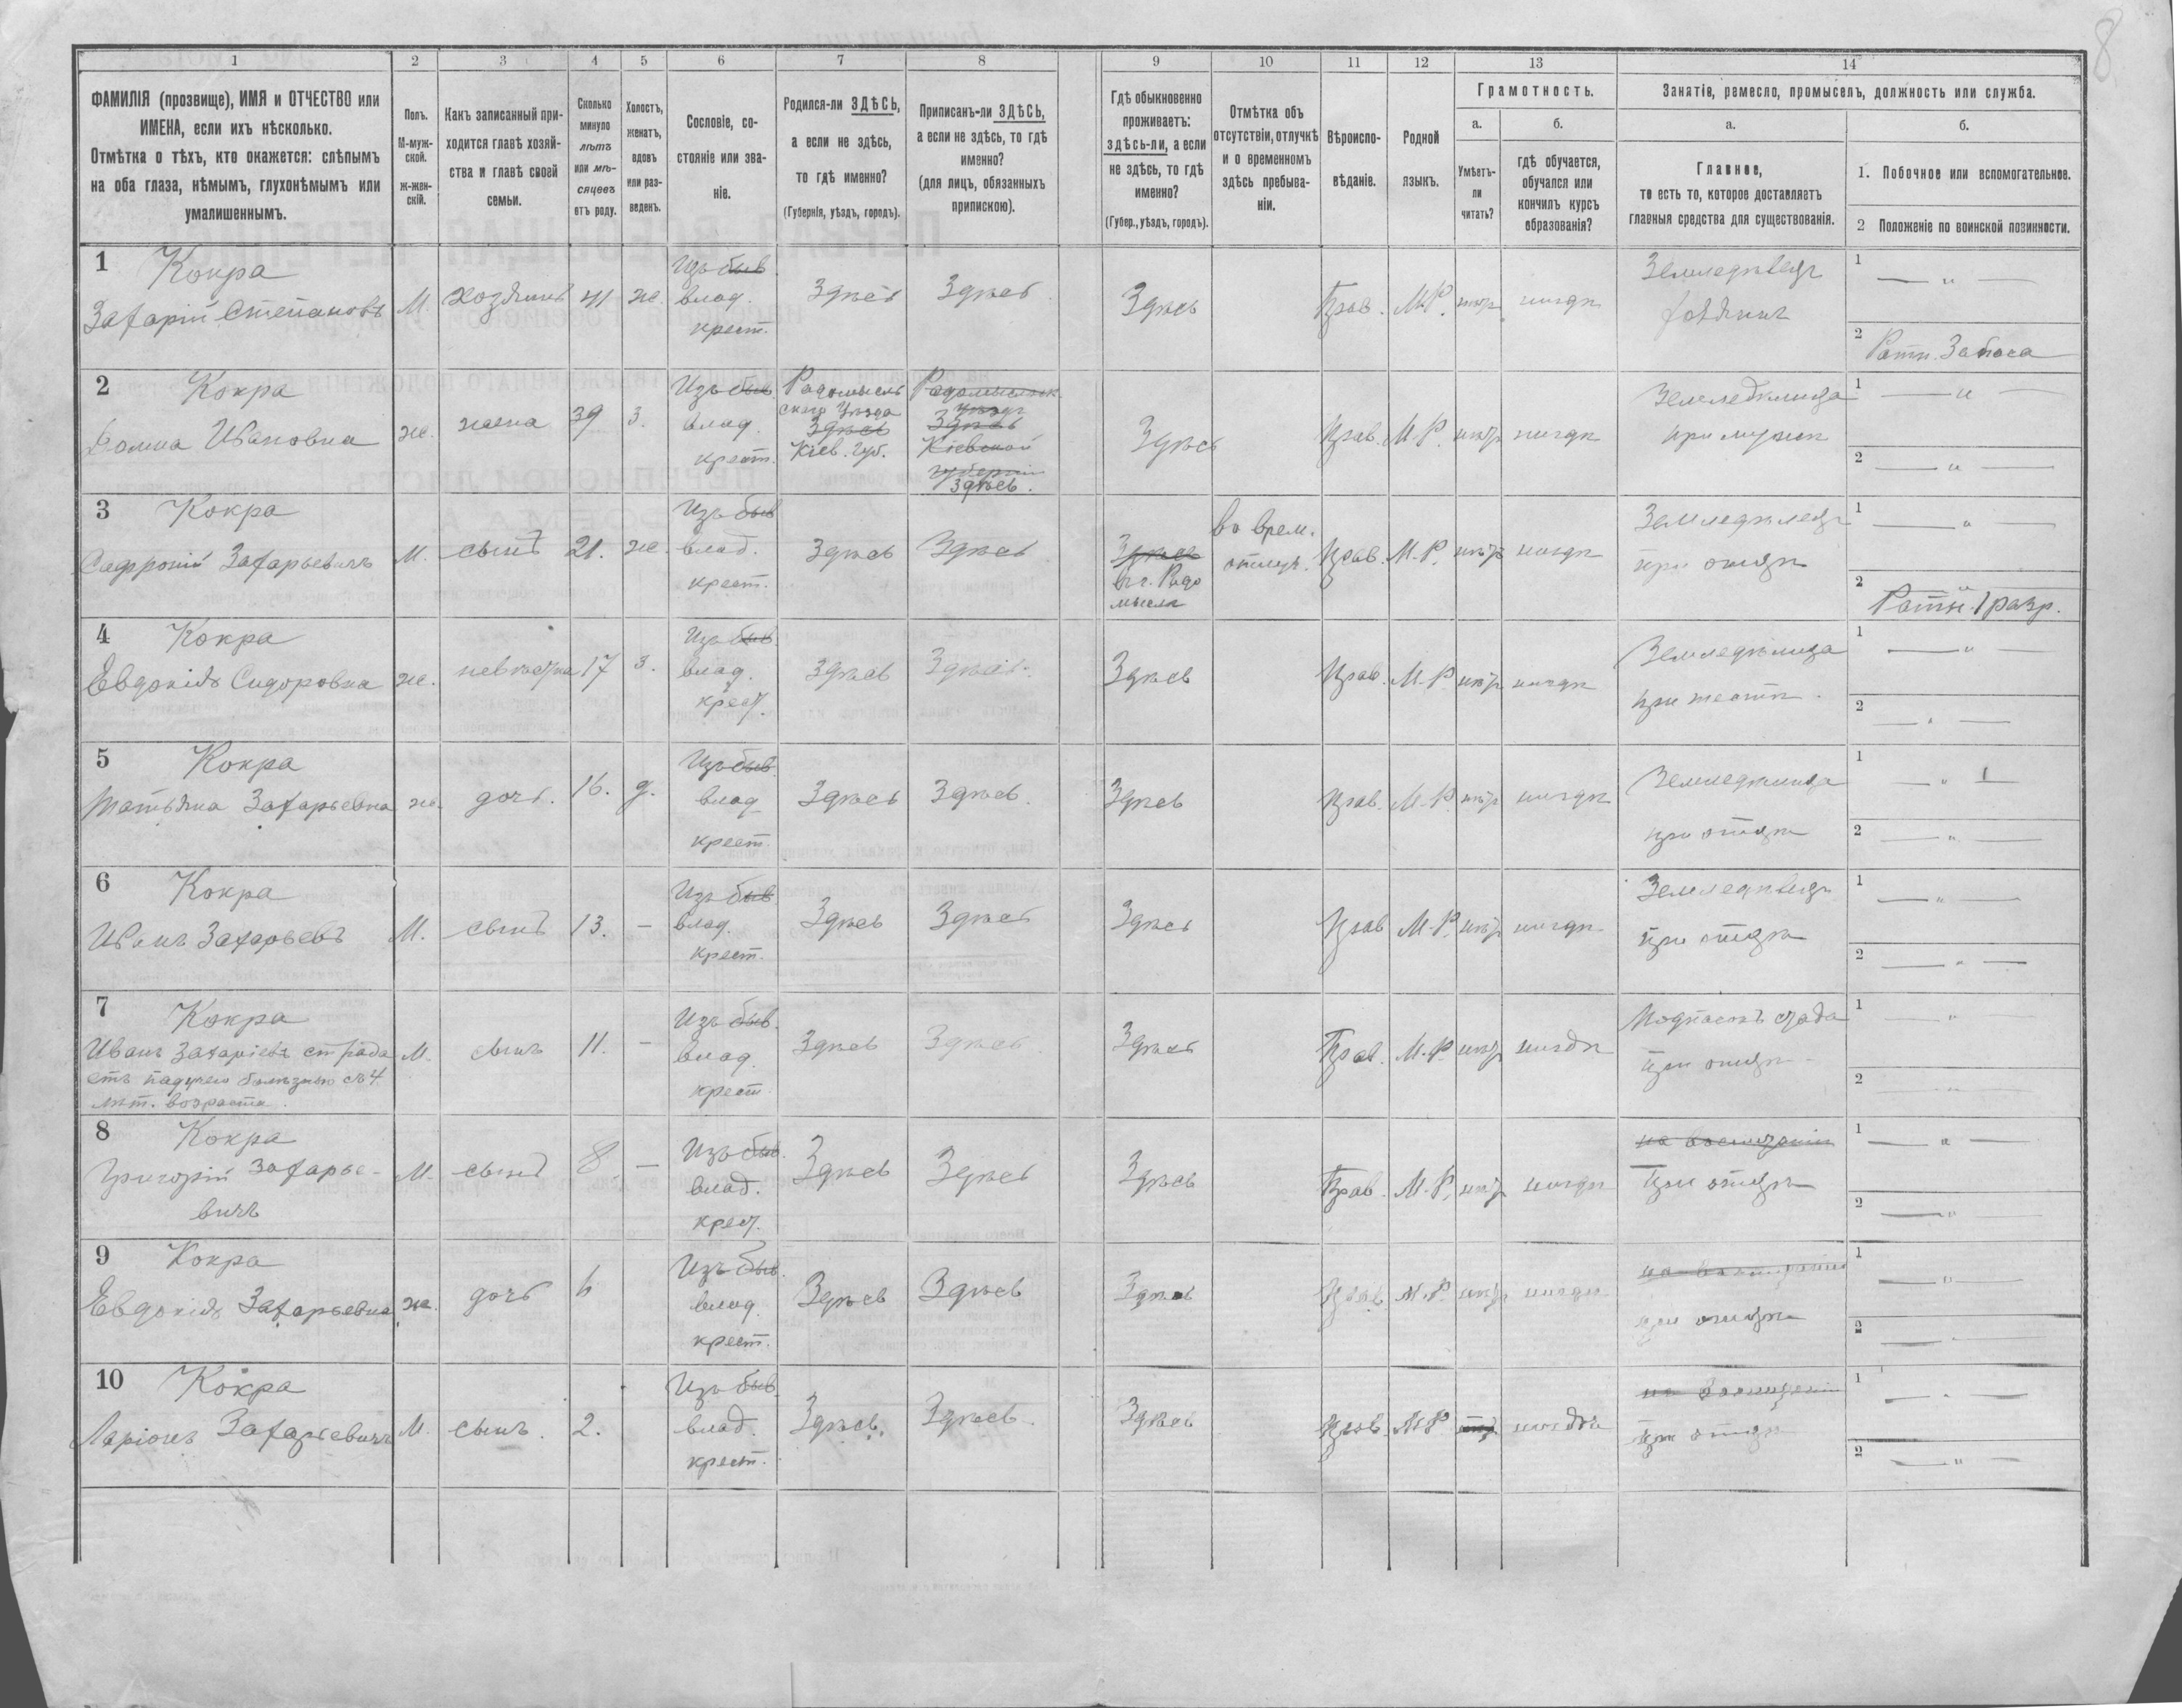 8
1 2 3 4 5 6 7 8 9 10 11 12 13 14
ФАМИЛІЯ (прозвище), ИМЯ и ОТЧЕСТВО или
ИМЕНА, если ихъ нѣсколько.
Отмѣтка о тѣхъ, кто окажется: слѣпымъ
на оба глаза, нѣмымъ, глухонѣмымъ или
умалишеннымъ.
Полъ.
М-муж-
ской.
ж-жен-
скій.
Какъ записанный при-
ходится главѣ хозяй-
ства и главѣ своей
семьи.
Сколько
минуло
лѣтъ
или мѣ-
сяцевъ
отъ роду.
Холостъ,
женатъ,
вдовъ
или раз-
веденъ.
Сословіе, со-
стояніе или зва-
ніе.
Родился-ли ЗДѢСЬ,
а если не здѣсь,
то гдѣ именно?
(Губернія, уѣздъ, городъ).
Приписанъ-ли ЗДѢСЬ,
а если не здѣсь, то гдѣ
именно?
(для лицъ, обязанныхъ
припискою).
Гдѣ обыкновенно
проживаетъ:
здѣсь-ли, а если
не здѣсь, то гдѣ
именно?
(Губер., уѣздъ, городъ).
Отмѣтка объ
отсутствіи, отлучкѣ
и о временномъ
здѣсь пребыва-
ніи.
Вѣроиспо-
вѣданіе.
Родной
языкъ.
Грамотность.
а.
Умѣетъ-
ли
читать?
б.
гдѣ обучается,
обучался или
кончилъ курсъ
образованія?
Занятіе, ремесло, промыселъ, должность или служба.
а.
Главное,
то есть то, которое доставляетъ
главныя средства для существованія.
б.
1. Побочное или вспомогательное.
2 Положеніе по воинской повинности.
1 Кокра
Захарій Степановъ М. хозяинъ 41 ж. Изъ быв влад. крест. Здѣсь Здѣсь Здѣсь Прав. М.Р. нѣтъ нигдѣ Земледѣлецъ хозяинъ
1 — " —
2 Ратн. Запаса
2 Кокра
Домна Ивановна ж. жена 39 з. Изъ быв влад. крест. Радомысль
скаго Уѣзда
Здѣсь
Кіев. Губ.
Радомысльск.
Уѣздъ
Здѣсь
Кіевской
губерніи
Здѣсь.
Здѣсь Прав. М.Р. нѣтъ нигдѣ Земледѣлица при мужѣ
1 — " —
2 — " —
3 Кокра
Софроній Захарьевичъ М. сынъ 21. ж. Изъ быв влад. крест. Здѣсь Здѣсь Здѣсь
въ г. Радо
мыслѣ
во врем.
отлуч. Прав. М.Р. нѣтъ нигдѣ Земледѣлецъ при отцѣ
1 — " —
2 Ратн. 1 разр.
4 Кокра
Евдокія Сидоровна ж. невѣстка 17 з. Изъ быв. влад. крест. Здѣсь Здѣсь. Здѣсь Прав. М.Р. нѣтъ нигдѣ Земледѣлица при тестѣ
1 — " —
2 — " —
5 Кокра
Татьяна Захарьевна ж. дочь. 16. д. Изъ быв. влад крест. Здѣсь Здѣсь. Здѣсь Прав. М.Р. нѣтъ нигдѣ Земледѣлица при отцѣ
1 — " —
2 — " —
6 Кокра
Иванъ Захарьевъ М. сынъ 13. — Изъ быв влад. крест. Здѣсь Здѣсь Здѣсь Прав М.Р. нѣтъ нигдѣ Земледѣлецъ при отцѣ
1 — " —
2 — " —
7 Кокра
Иванъ Захаріевъ страда
етъ падучею болѣзнью съ 4
лѣт. возраста. М. сынъ 11. — Изъ быв. влад. крест Здѣсь Здѣсь Здѣсь Прав. М.Р. нѣтъ нигдѣ Подпасокъ стада при отцѣ
1 — " —
2 "
8 Кокра
Григорій Захарье-
вичъ М. сынъ 8 — Изъ быв. влад. крест. Здѣсь Здѣсь Здѣсь Прав. М.Р. нѣтъ нигдѣ При отцѣ
1 — " —
2 — " —
9 Кокра
Евдокія Захарьевна ж. дочь 6 Изъ быв. влад. крест. Здѣсь Здѣсь Здѣсь Прав М.Р. нѣтъ нигдѣ при отцѣ
1 — " —
2 — " —
10 Кокра
Ларіонъ Захарьевичъ М. сынъ. 2. Изъ быв. влад. крест. Здѣсь. Здѣсь. Здѣсь Прав. М.Р нигдѣ при отцѣ
1 — " —
2 — " —